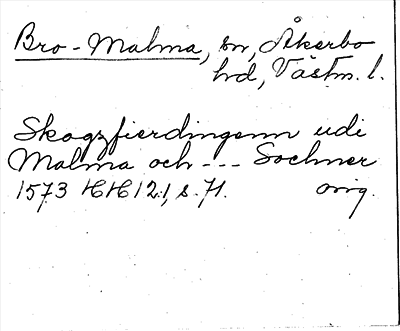 Bro-Malma, sn, Åkerbo
hd, Västm. l.
Skogzfierdingenn udi
Malma och --- Sochner
1573 HH 12:1, s. 71. orig.